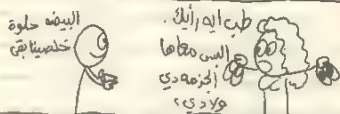 طب ايه رأيك.
البس معاها
الجزمه دي
ولا دي؟
البيضه حلوة
خلصينا بقى